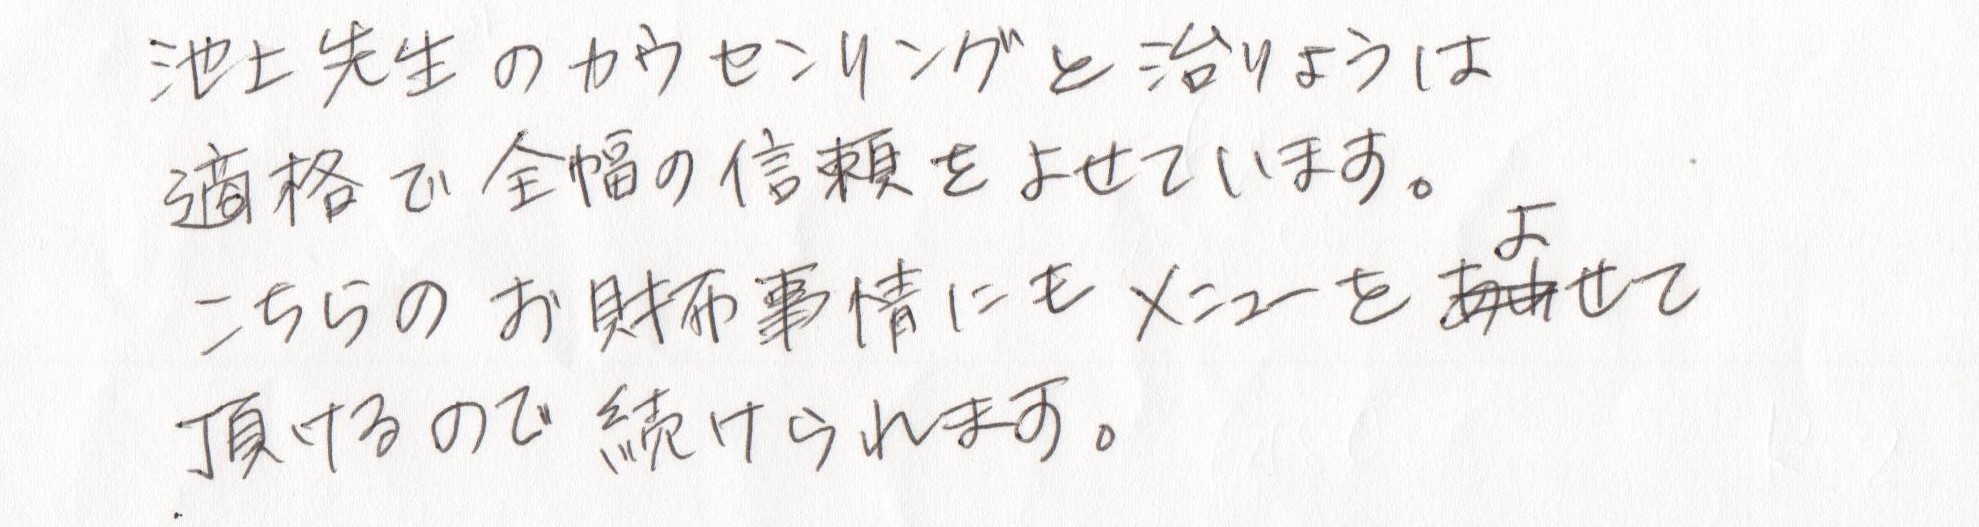 池上先生のカウセンリングと治りょうは
適格で全幅の信頼をよせています。
こちらのお財布事情にもメニューをよせて
頂けるので続けられます。